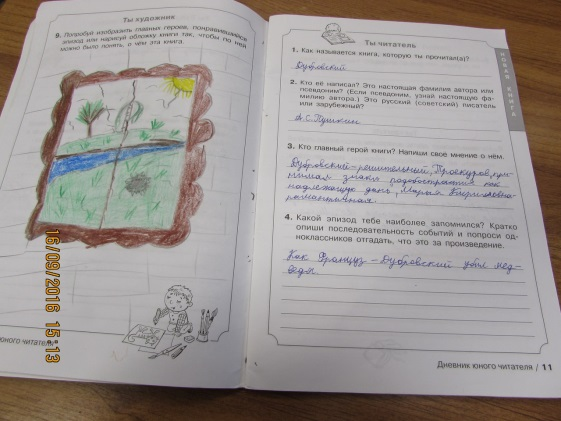 Ты художник
9. Попробуй изобразить главных героев, понравившийся
эпизод или нарисуй обложку книги так, чтобы по ней
можно было понять, о чём эта книга.
16/09/2016 15:13
юного читателя
Ты читатель
1. Как называется книга, которую ты прочитал(а)?
Дубровский
2. Кто её написал? Это настоящая фамилия автора или
псевдоним? (Если псевдоним, узнай настоящую фа-
милию автора.) Это русский (советский) писатель
или зарубежный?
А.С.Пушкин
3. Кто главный герой книги? Напиши своё мнение о нём.
Дубровский-решительный, Троекуров, при-
нимая знаки подобострастия как
надлежащую дань, Марья Кириловна-
романтичная.
4. Какой эпизод тебе наиболее запомнился? Кратко
опиши последовательность событий и попроси од-
ноклассников отгадать, что это за произведение.
Как Француз-Дубровский убил мед-
ведя
НОВАЯ КНИГА
Дневник юного читателя / 11